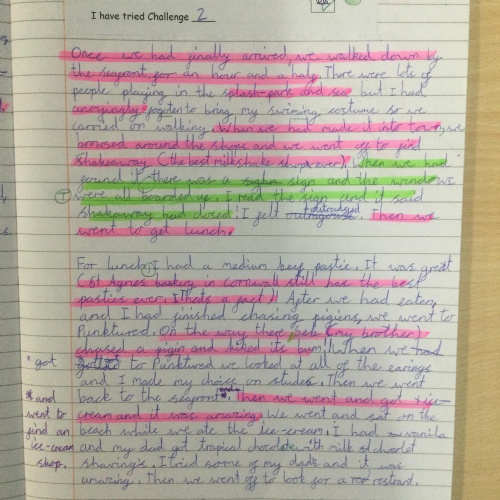 I have tried Challenge 2
Once we had finally arrived, we walked down by
the seafront, for an hour and a half. There were lots of
people playing in the splash-park and sea but I had
annoyingly forgoten to bring my swiming costume so we
carried on walking. When we had made it into town, we
browsed around the shops and we went off to find
shakeaway (the best milkshake shop ever). Then we had
found it there was a sign and the windows
were all boarded up. I read the sign and it said
shakeaway had closed! I felt outraged. Then we
went to get lunch.
For lunch, I had a medium beef pastie. It was great
(St Agnes bakery in Cornwall still has the best
pasties ever. Thats a fact)! After we had eaten,
and I had finished chasing pigins, we went to
Punktured. On the way there, Seb (my brother)
chased a pigin and kiked its bum! When we had
*got to Punktured we looked at all of the earings
and I made my choise on studes. Then we went
back to the seafront *and. Then we went and got ice-
cream and it was amazing. We went and sat on the
beach while we ate the ice-cream. I had vanila
and my dad got tropical chocolate with milk chocolet
shavings. I tried some of my dads and it was
amazing. Then we went off to look for a restrant.
*and
went to
find an
ice-cream
shop.